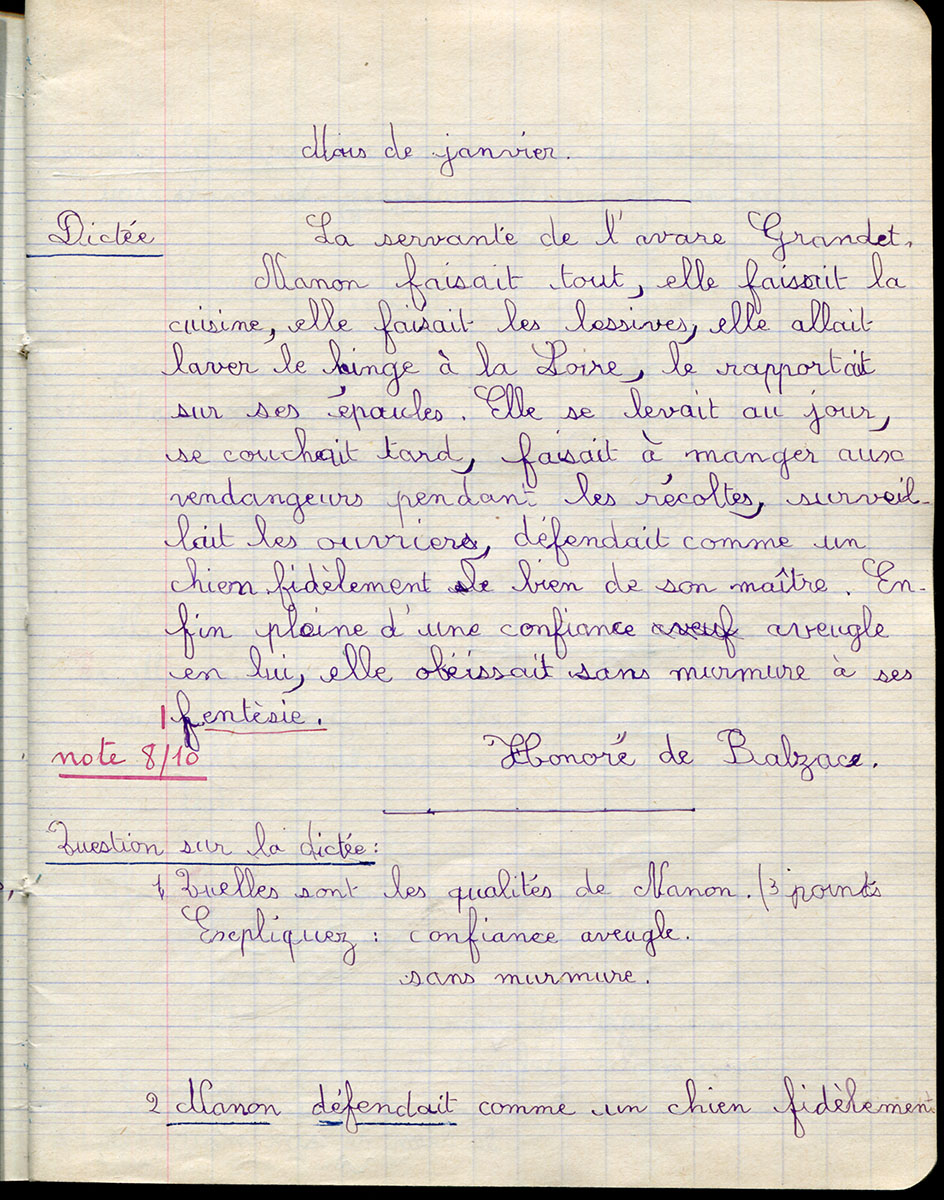 Mois de janvier.
Dictée La servante de l'avare Grandet.
Manon faisait tout, elle faisait la
cuisine, elle faisait les lessives, elle allait
laver le linge à la Loire, le rapportait
sur ses épaules. Elle se levait au jour,
se couchait tard, faisait à manger aux
vendangeurs pendant les récoltes, surveil-
lait les ouvriers, défendait comme un
chien fidèlement le bien de son maître. En-
fin pleine d'une confiance aveuf aveugle
en lui, elle obéissait sans murmure à ses
1 fentèsie.
note 8/10 Honoré de Balzac.
Question sur la dictée :
1, Quelles sont les qualités de Manon. (3 points
Expliquez : confiance aveugle.
sans murmure.
2 Manon défendait comme un chien fidèlement